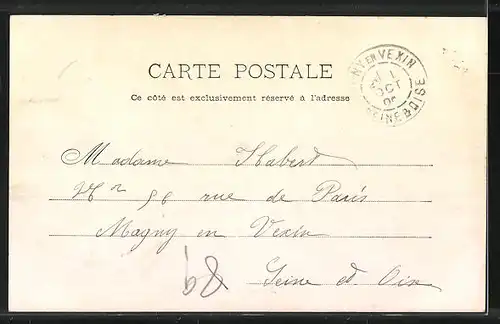 CARTE POSTALE
Ce côté est exclusivement réservé à l'adresse
NY EN VEXIN
OCT
SEINE & OISE
Madame Habert
rue de Paris
Magny en Vexin
Seine et Oise